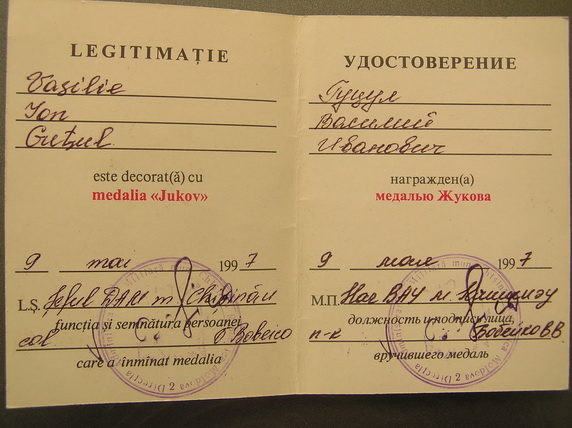 LEGITIMAȚIE
Vasilie
Ion
Guțul
este decorat(ă) cu
medalia «Jukov»
9 mai 1997
L.Ș. Șeful DAM m Chișinău
funcția și semnătura persoanei
col Bobeico
care a înmînat medalia
УДОСТОВЕРЕНИЕ
Гуцул
Василий
Иванович
награжден(а)
медалью Жукова
9 мая 1997
М.П. Нач ВАУ м. Кишинэу
должность и подпись лица,
п-к Бобейко ВВ
вручившего медаль